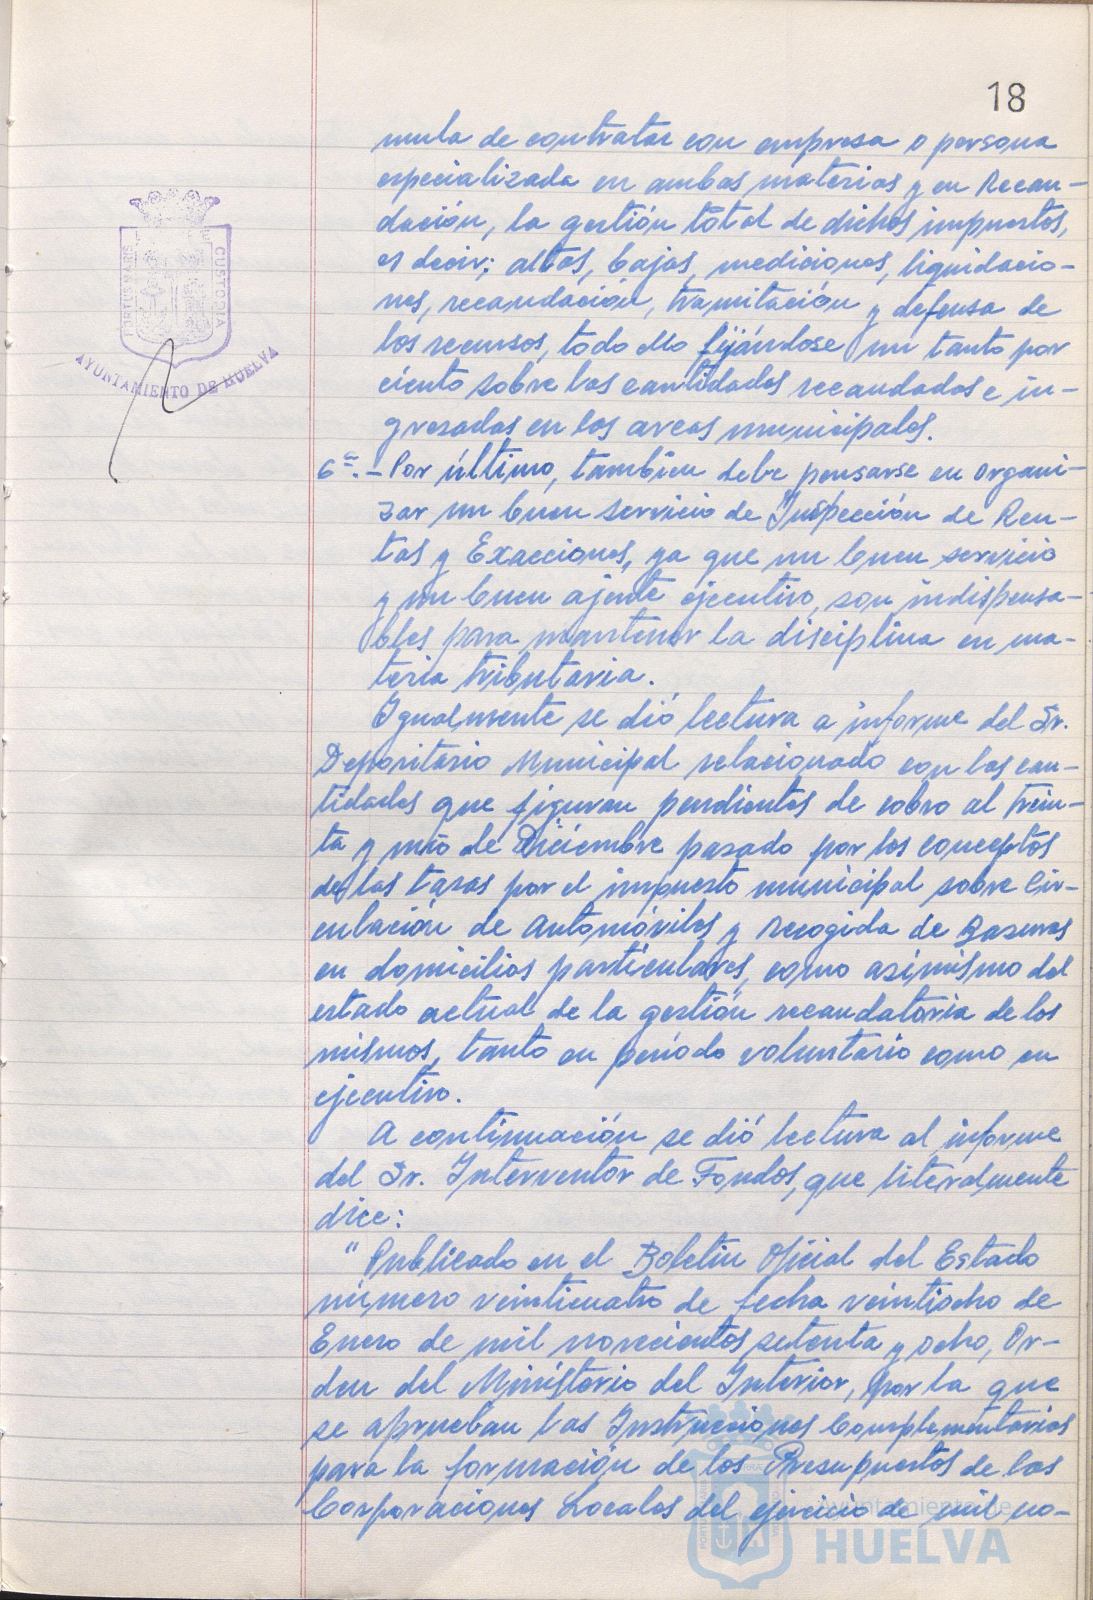 18
mula de contratar con empresa o persona
especializada en ambas materias y en Recau-
dación, la gestión total de dichos impuestos,
es decir; altas, bajas, mediciones, liquidacio-
nes, recaudación, tramitación y defensa de
los recursos, todo ello fijándose un tanto por
ciento sobre las cantidades recaudadas e in-
gresadas en las arcas municipales.
6º.- Por último, tambien debe pensarse en organi-
zar un buen servicio de Inspección de Ren-
tas y Exacciones, ya que un buen servicio
y un buen ajente ejecutivo, son indispensa-
bles para mantener la disciplina en ma-
teria tributaria.
Igualmente se dió lectura a informe del Sr.
Depositario Municipal relacionado con las can-
tidades que figuran pendientes de cobro al trein-
ta y uno de Diciembre pasado por los conceptos
de las tasas por el impuesto municipal sobre Cir-
culación de Automóviles y Recogida de Basuras
en domicilios particulares, como asimismo del
estado actual de la gestión recaudatoria de los
mismos, tanto en período voluntario como en
ejecutivo.
A continuación se dió lectura al informe
del Sr. Interventor de Fondos, que literalmente
dice:
" Publicado en el Boletin Oficial del Estado
número veinticuatro de fecha veintiocho de
Enero de mil novecientos setenta y ocho, Or-
den del Ministerio del Interior, por la que
se aprueban las Instrucciones Complementarias
para la formación de los Presupuestos de las
Corporaciones Locales del ejercicio de mil no-
PORTUS MARIS
CUSTODIA
AYUNTAMIENTO DE HUELVA
Ayuntamiento de
HUELVA